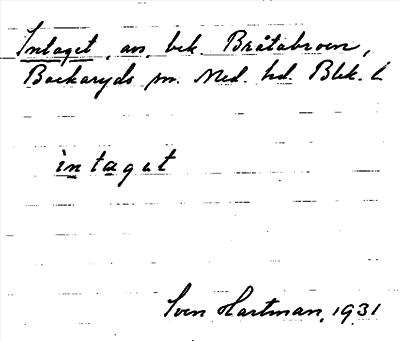 Intaget, av. bek. Bråtabroen,
Backaryds sn. Med. hd. Blek. L
ìntagat
Sven Hartman, 1931